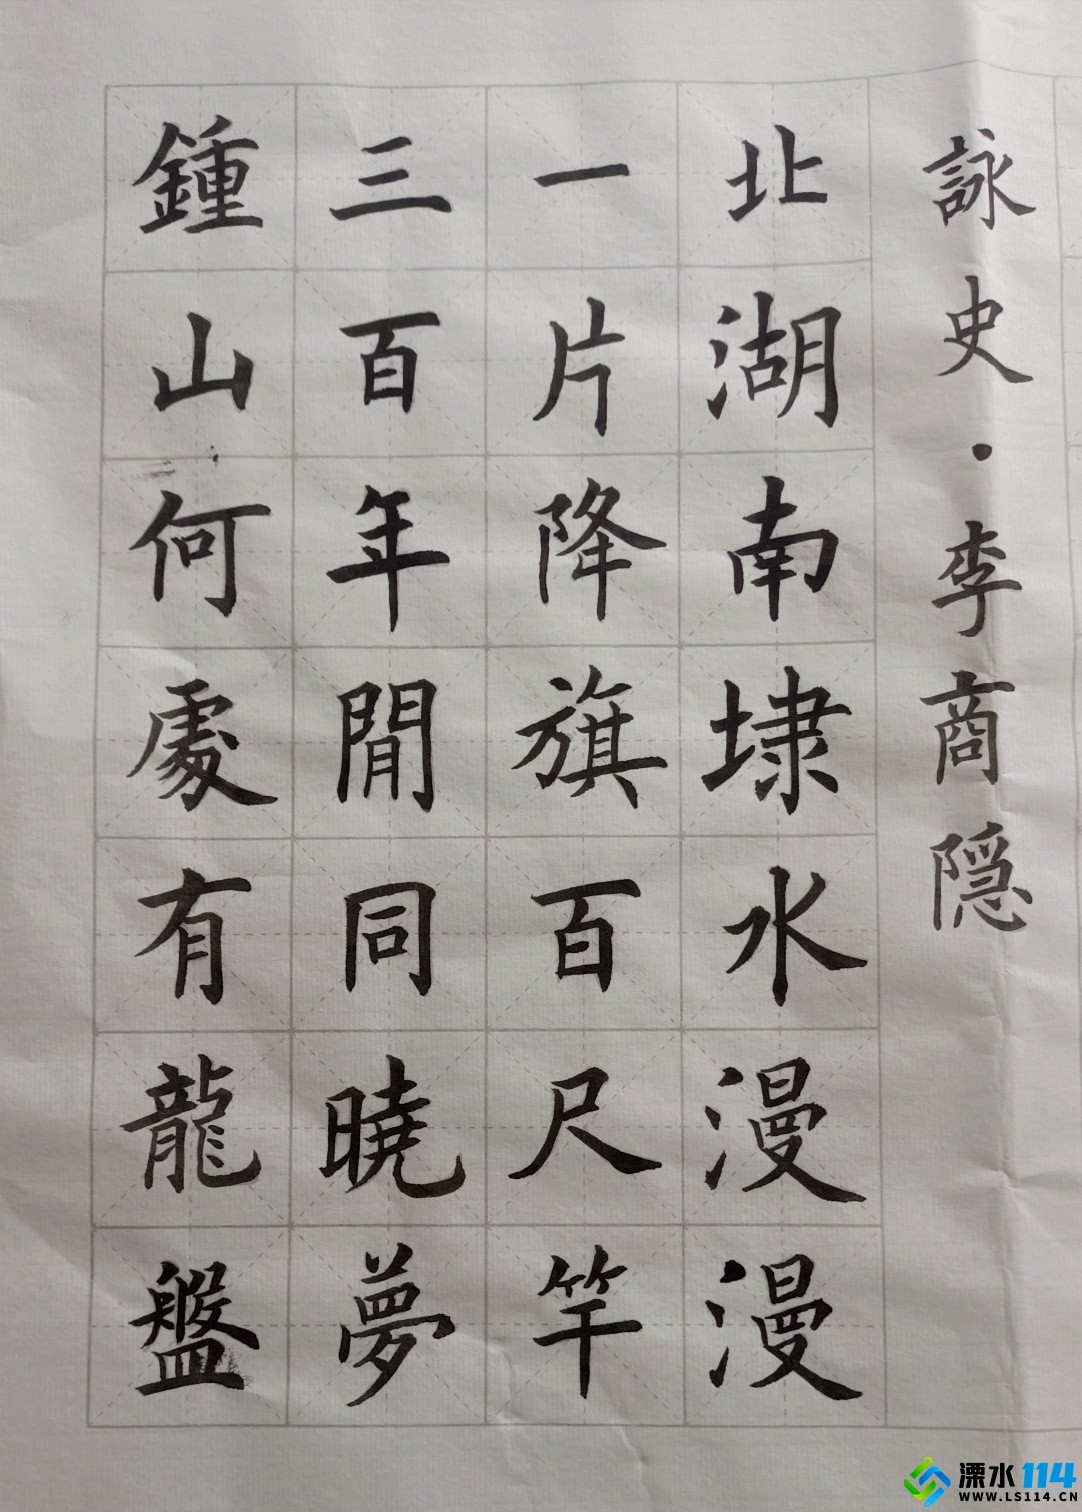 詠史·李商隱
北湖南埭水漫漫
一片降旗百尺竿
三百年間同曉夢
鍾山何處有龍盤
溧水114
WWW.LS114.CN